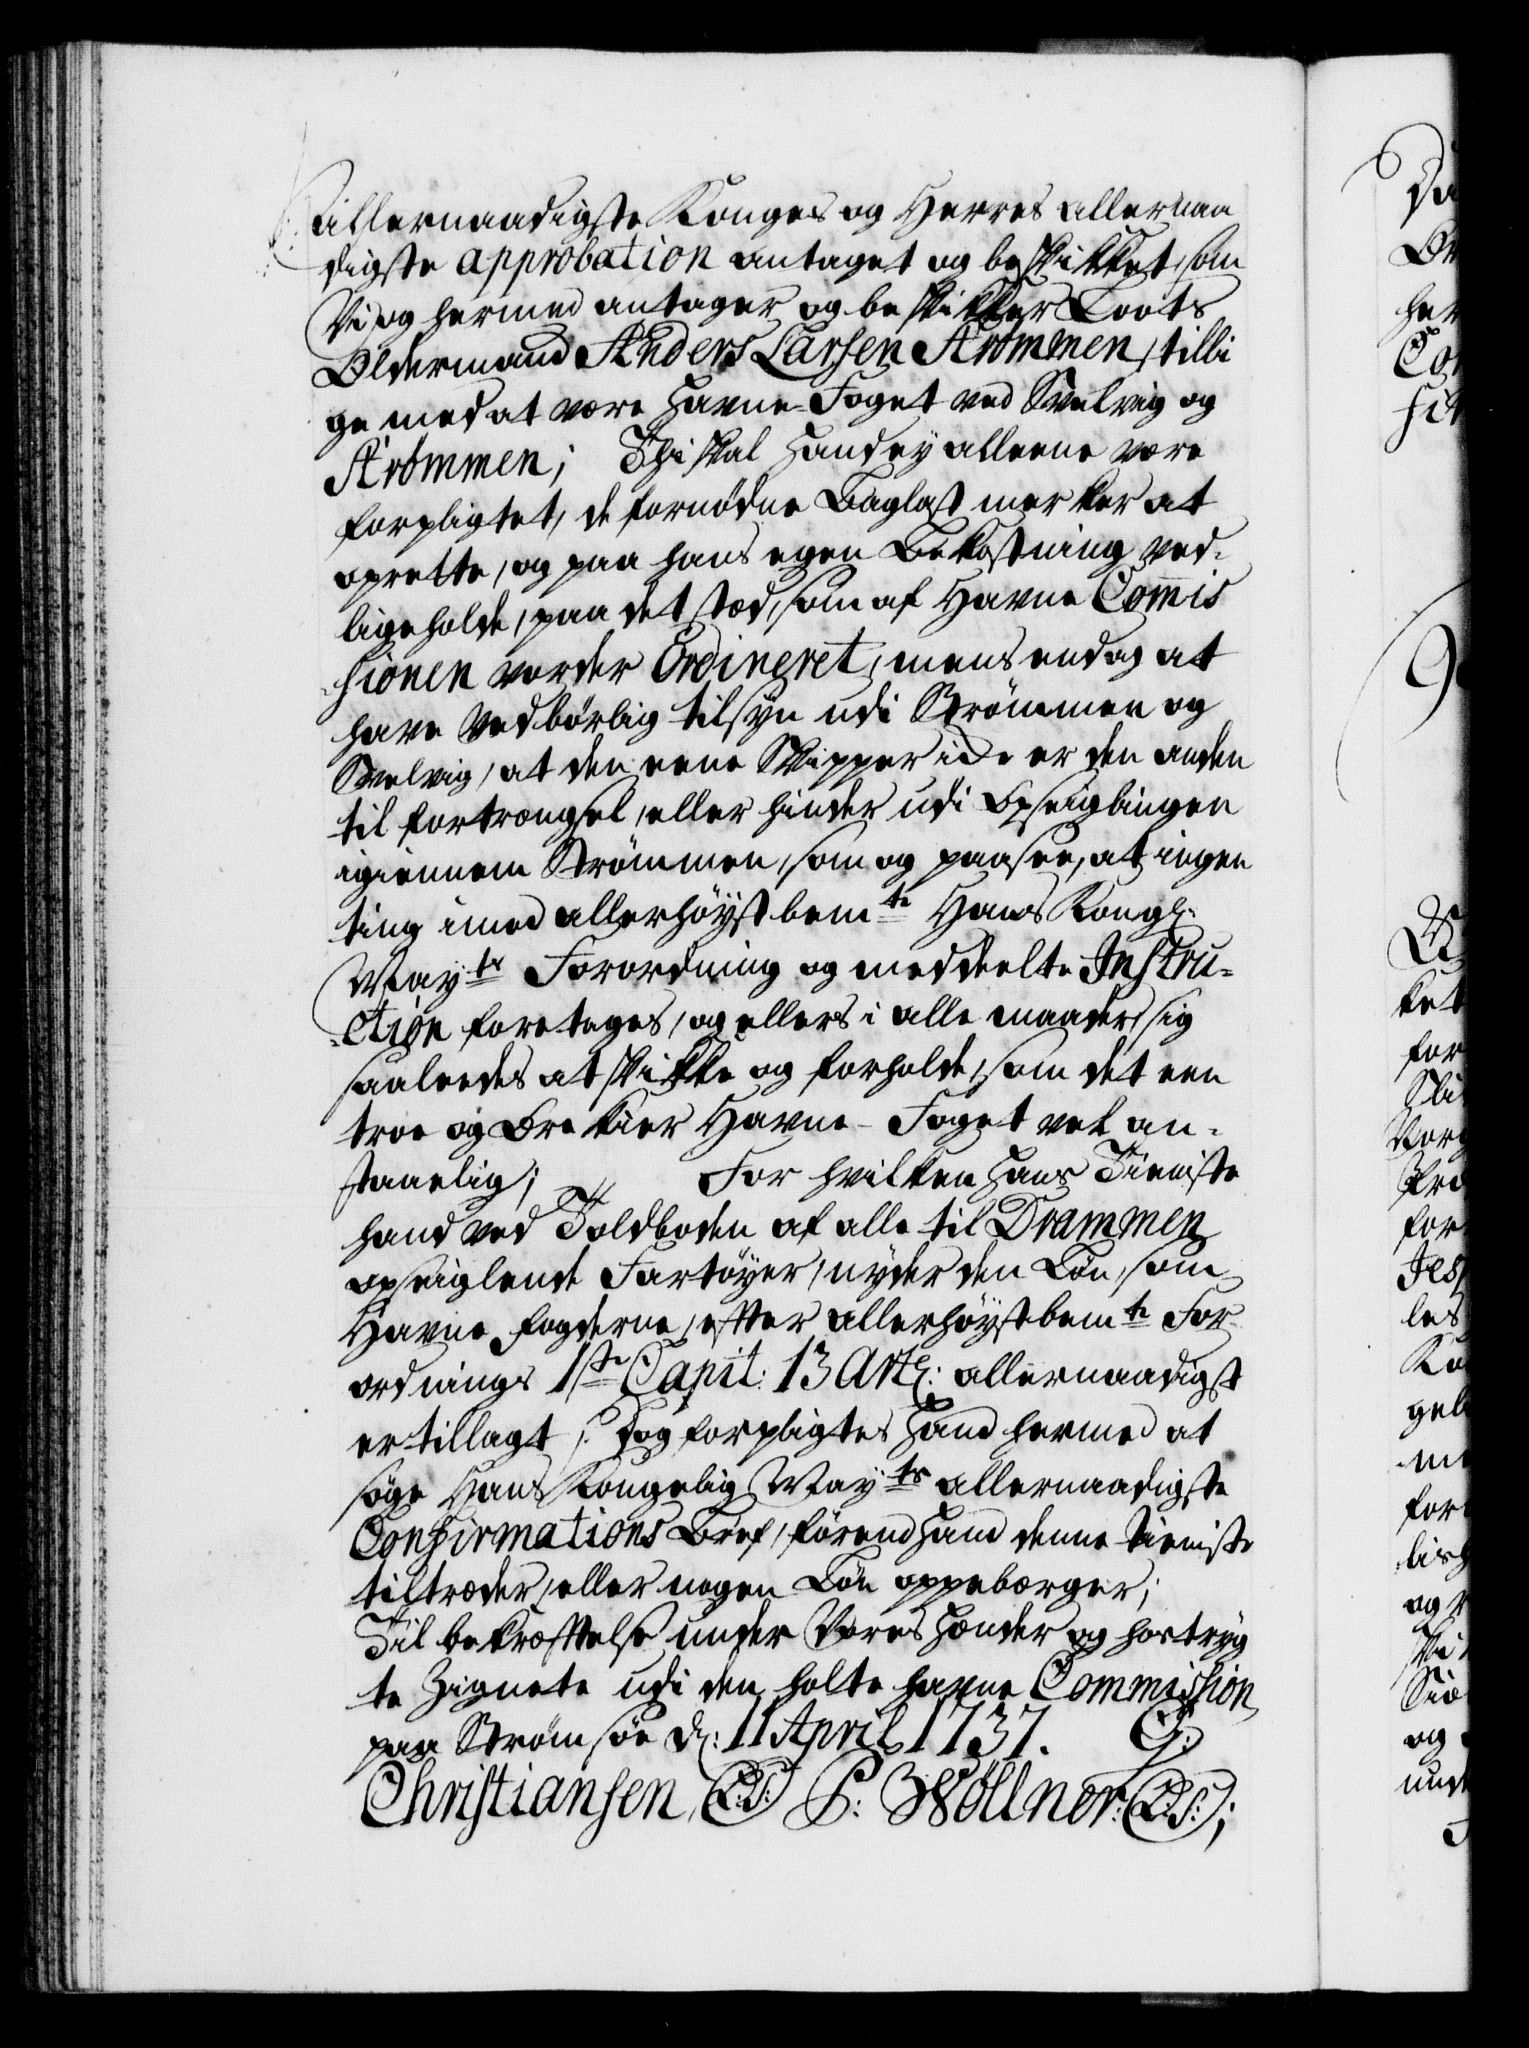 allernaadigste Konges og Herres allernaa
digste approbation antaget og beskikket, som
Vi og hermed antager og beskikker Loots
Oldermand Anders Larsen Strømmen, tilli
ge med at være Havne-Foget ved Svelvig og
Strømmen; Thi skal Hand ey alleene være
forpligtet, de fornødne Baglast merker at
oprette, og paa hans egen Bekostning ved-
ligeholde, paa det stæd, som af Havne Commis
sionen vorder Ordineret, mens endog at
have Vedbørlig tilsyn udi Strømmen og
Svelvig, at den eene Skipper icke er den anden
til fortrængsel, eller hinder udi Opseiglingen
igiennem Strømmen, som og paasee, at ingen
ting imod allerhøystbemte Hans Kongl:
Mayts Forordning og meddeelte Instru-
ction foretages, og ellers i alle maader sig
saaledes at skikke og forholde, som det een
troe og Erekier Havne-Foget vel an-
staaelig; For hvilken hans Tieniste
hand ved Toldboden af alle til Drammen
opseiglende Fartøyer, nyder den Løn, som
Havne fogderne, efter allerhøystbemte For-
ordnings 1ste Capit: 13 Artl: allernaadigst
er tillagt; Dog forpligtes Hand hermed at
søge Hans Kongelig Mayts allernaadigste
Confirmations Bref, førend Hand denne tieniste
tiltræder, eller nogen Løn oppebærger;
Til bekræftelse under Vores Hænder og hostryg
te Zignete udi den holte havne Commission
paa Strømsøe d: 11 April 1737. G:
Christiansen (L:S:) P: Wöllner: (L:S:);